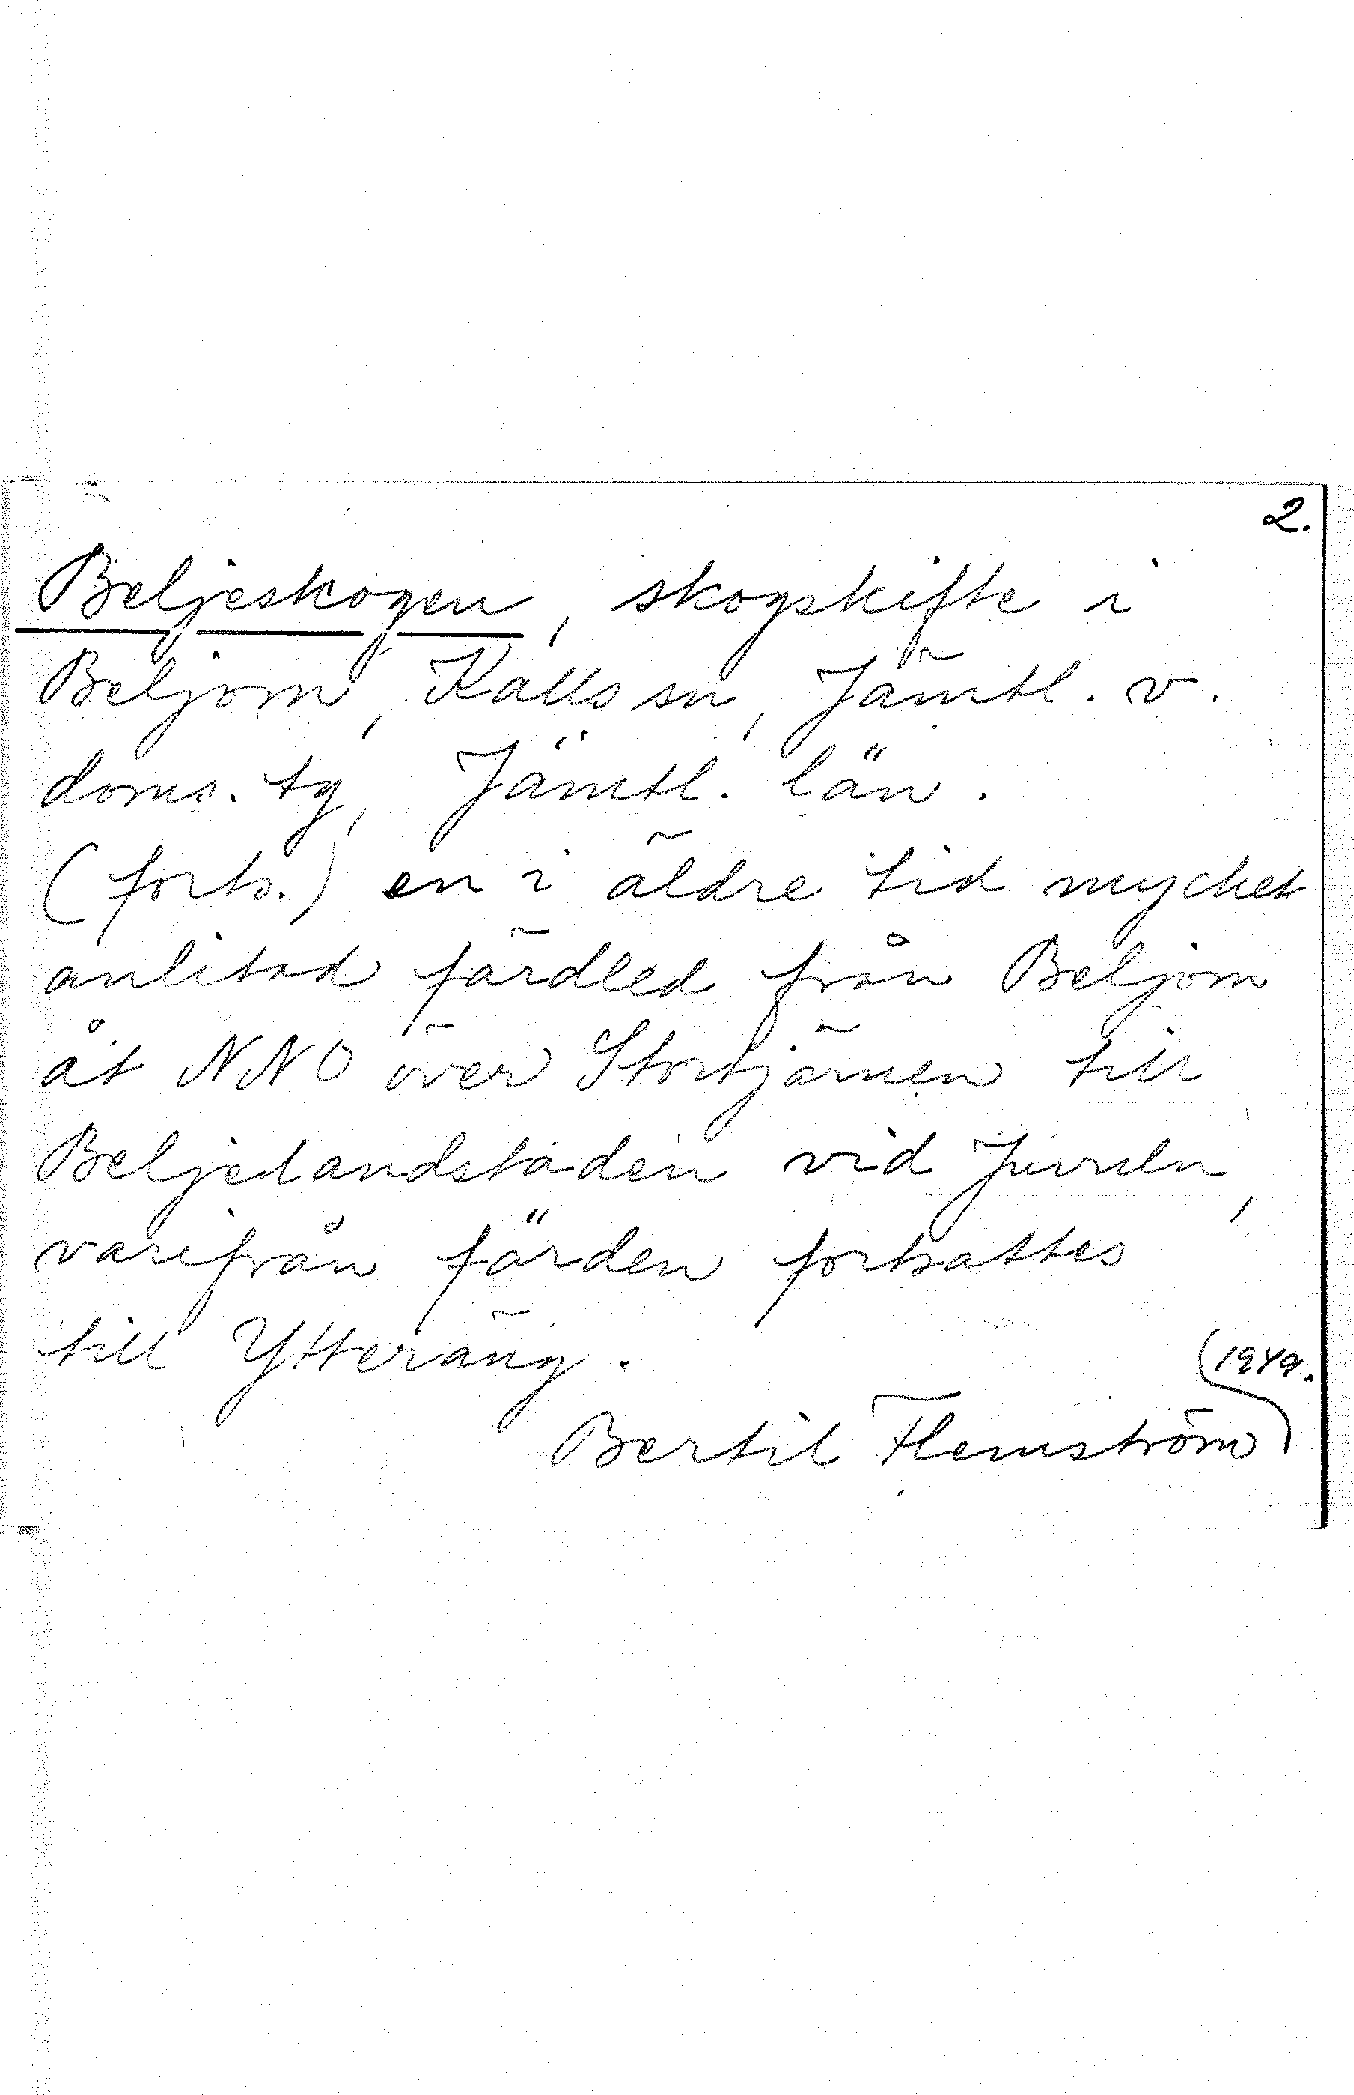 2.
Beljeskogen, skogskifte i
Beljom, Kalls sn, Jämtl. v.
doms. tg, Jämtl. län.
(forts.) en i äldre tid mycket
anlitad färdled från Beljom
åt NNO över Stortjärnen till
Beljelandstaden vid Juvuln,
varifrån färden fortsattes
till Ytteräng.
(1949.
Bertil Flemström